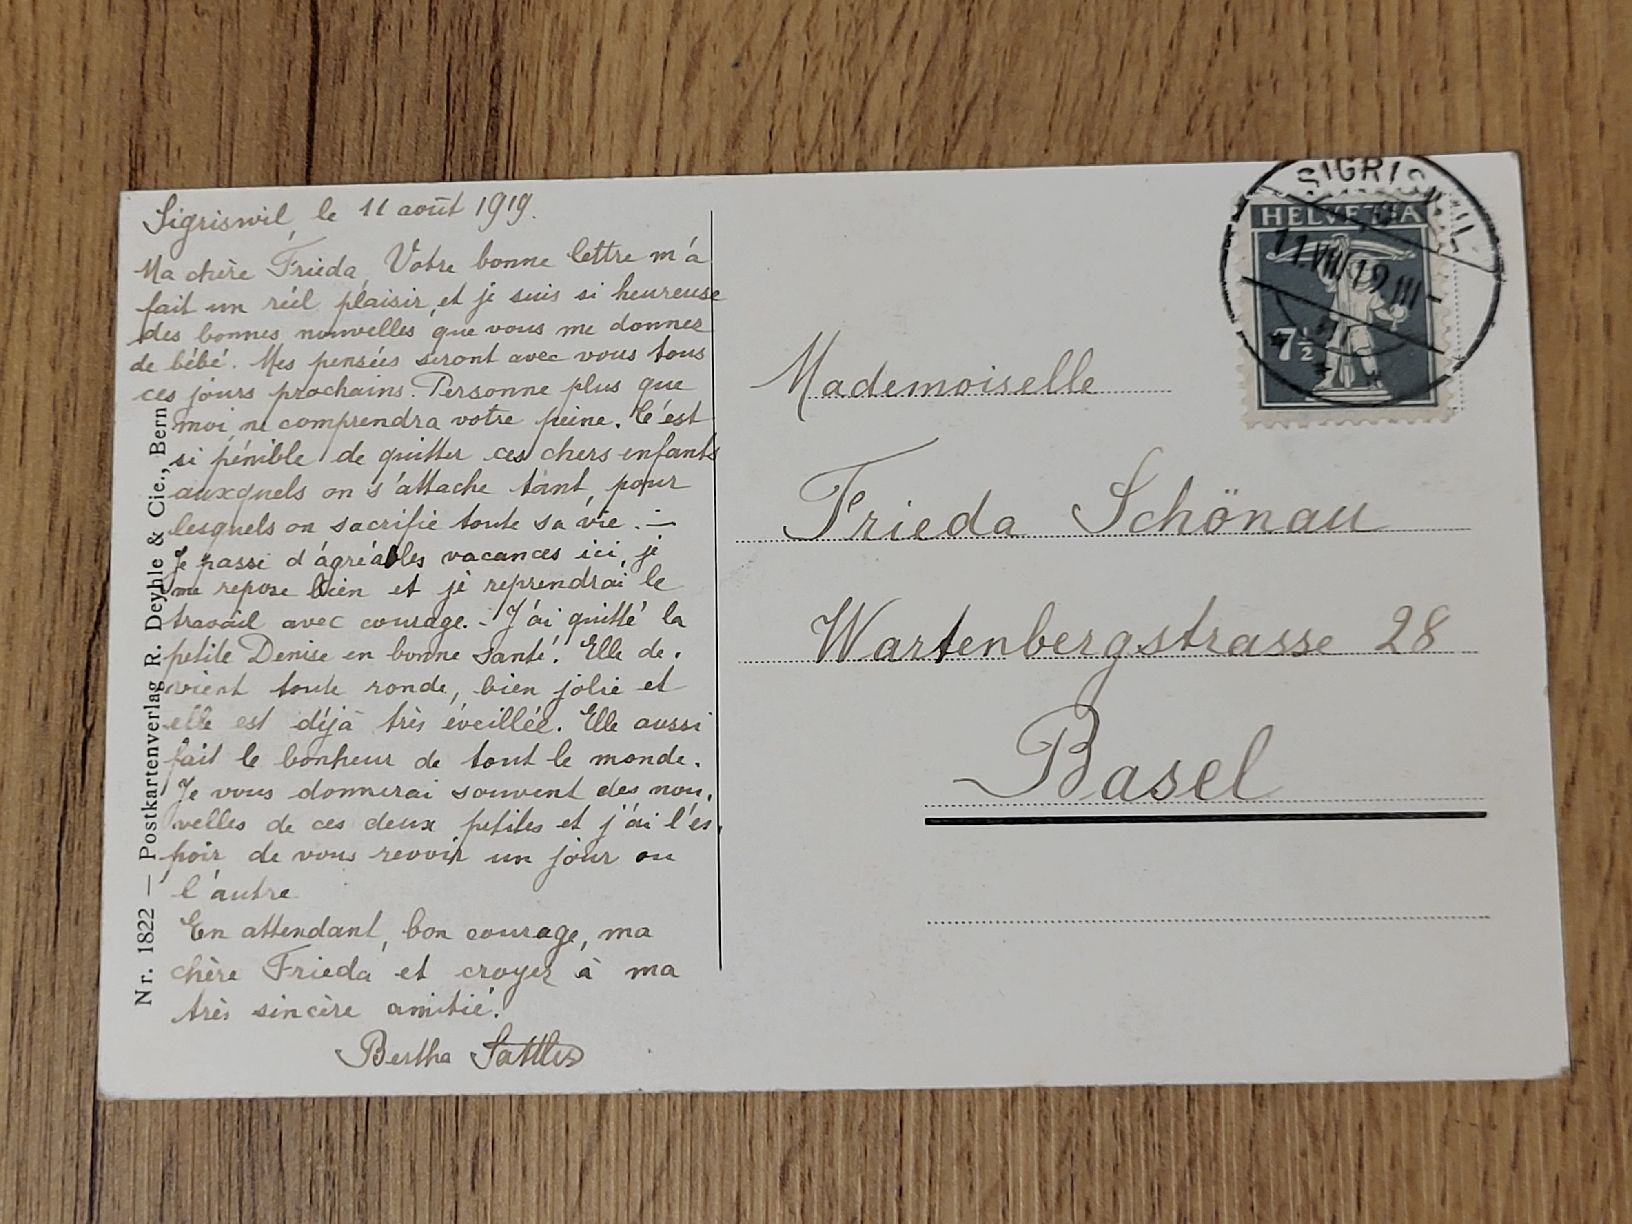 Sigriswil, le 11 août 1919.
Ma chère Frieda, Votre bonne lettre m'a
fait un réel plaisir et je suis si heureuse
des bonnes nouvelles que vous me donnez
de bébé. Mes pensées seront avec vous tous
ces jours prochains. Personne plus que
moi ne comprendra votre peine. C'est
si pénible de quitter ces chers enfants
auxquels on s'attache tant, pour
lesquels on sacrifie toute sa vie. —
Je passe d'agréables vacances ici, je
me repose bien et je reprendrai le
travail avec courage. - J'ai quitté la
petite Denise en bonne santé. Elle de-
vient toute ronde, bien jolie et
elle est déjà très éveillée. Elle aussi
fait le bonheur de tout le monde.
Je vous donnerai souvent des nou-
velles de ces deux petites et j'ai l'es-
poir de vous revoir un jour ou
l'autre
En attendant, bon courage, ma
chère Frieda et croyez à ma
très sincère amitié.
Bertha Sattler
Nr. 1822 — Postkartenverlag R. Deyhle & Cie., Bern
SIGRISWIL
11.VIII.19.III-
HELVETIA
7½
Mademoiselle
Frieda Schönau
Wartenbergstrasse 28
Basel